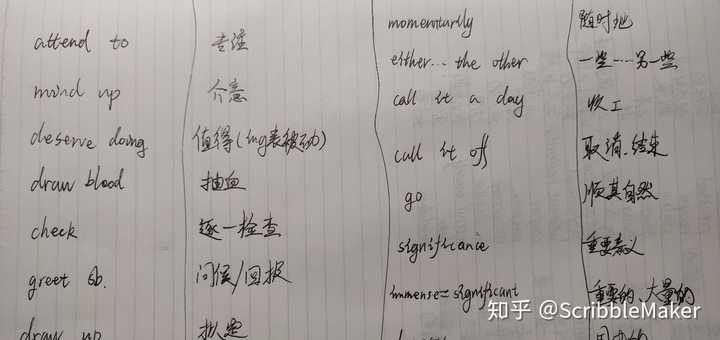 attend to 专注
mind up 介意
deserve doing 值得(ing表被动)
draw blood 抽血
check 逐一检查
greet sb. 问候/回报
draw up 拟定
momentarily 随时地
either... the other 一些…另一些
call it a day 收工
call it off 取消、结束
go 顺其自然
significance 重要意义
immense=significant 重要的、大量的
知乎 @ScribbleMaker